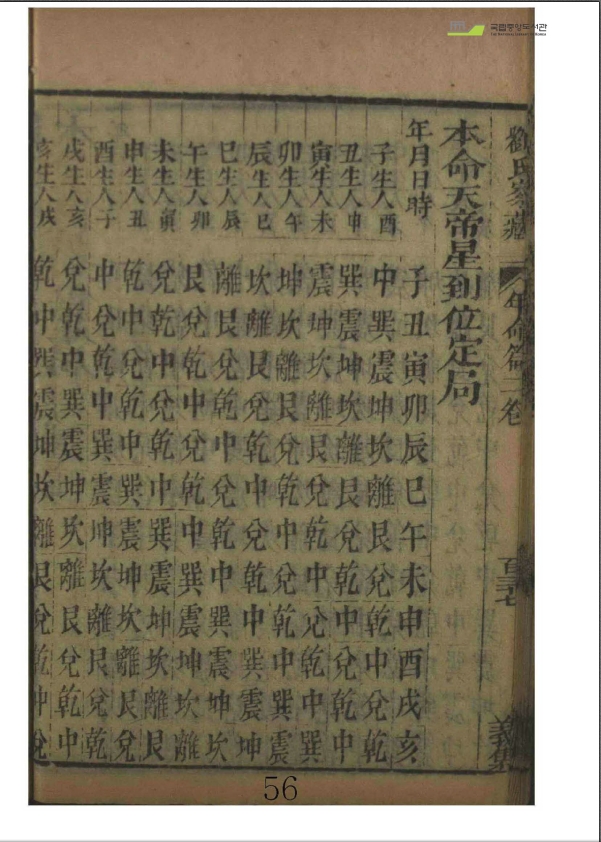 국립중앙도서관
氏家藏
年命篇二卷
義集
本命天帝星到位定局
年月日時 子丑寅卯辰巳午未申酉戌亥
子生人酉 中巽震坤坎離艮兌乾中兌乾
丑生人申 巽震坤坎離艮兌乾中兌乾中
寅生人未 震坤坎離艮兌乾中兌乾中巽
卯生人午 坤坎離艮兌乾中兌乾中巽震
辰生人巳 坎離艮兌乾中兌乾中巽震坤
巳生人辰 離艮兌乾中兌乾中巽震坤坎
午生人卯 艮兌乾中兌乾中巽震坤坎離
未生人寅 兌乾中兌乾中巽震坤坎離艮
申生人丑 乾中兌乾中巽震坤坎離艮兌
酉生人子 中兌乾中巽震坤坎離艮兌乾
戌生人亥 兌乾中巽震坤坎離艮兌乾中
亥生人戌 乾中巽震坤坎離艮兌乾中兌
56